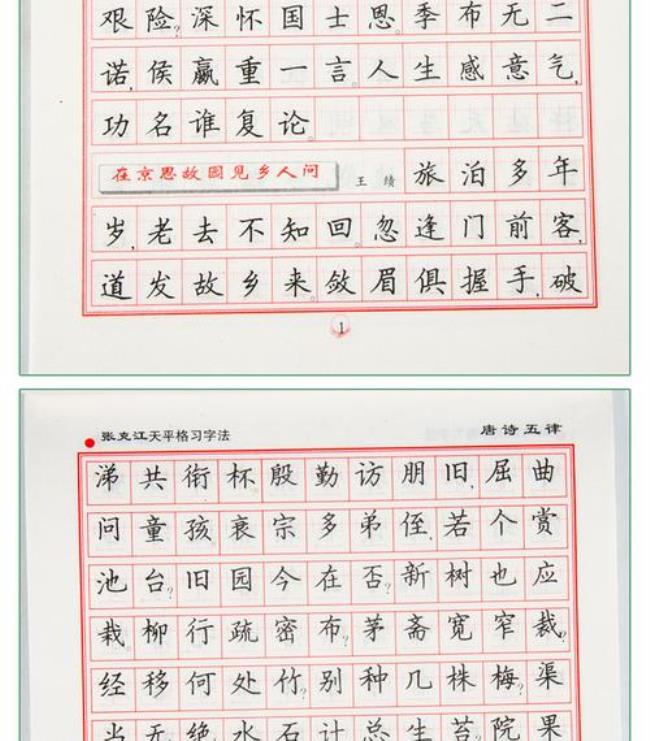 艰险?深怀国士恩。季布无二
诺,侯嬴重一言。人生感意气,
功名谁复论。
在京思故园见乡人问 王绩 旅泊多年
岁,老去不知回。忽逢门前客,
道发故乡来。敛眉俱握手,破
1
张克江天平格习字法 唐诗五律
涕共衔杯殷勤访朋旧,屈曲
问童孩衰宗多弟侄,若个赏
池台?旧园今在否?新树也应
栽。柳行疏密布?茅斋宽窄裁?
经移何处竹?别种几株梅?渠
当无绝水石计总生苔?院果